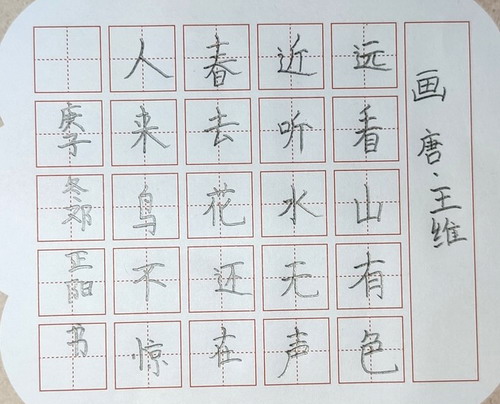 画 唐·王维
远看山有色
近听水无声
春去花还在
人来鸟不惊
庚子冬邓正阳书